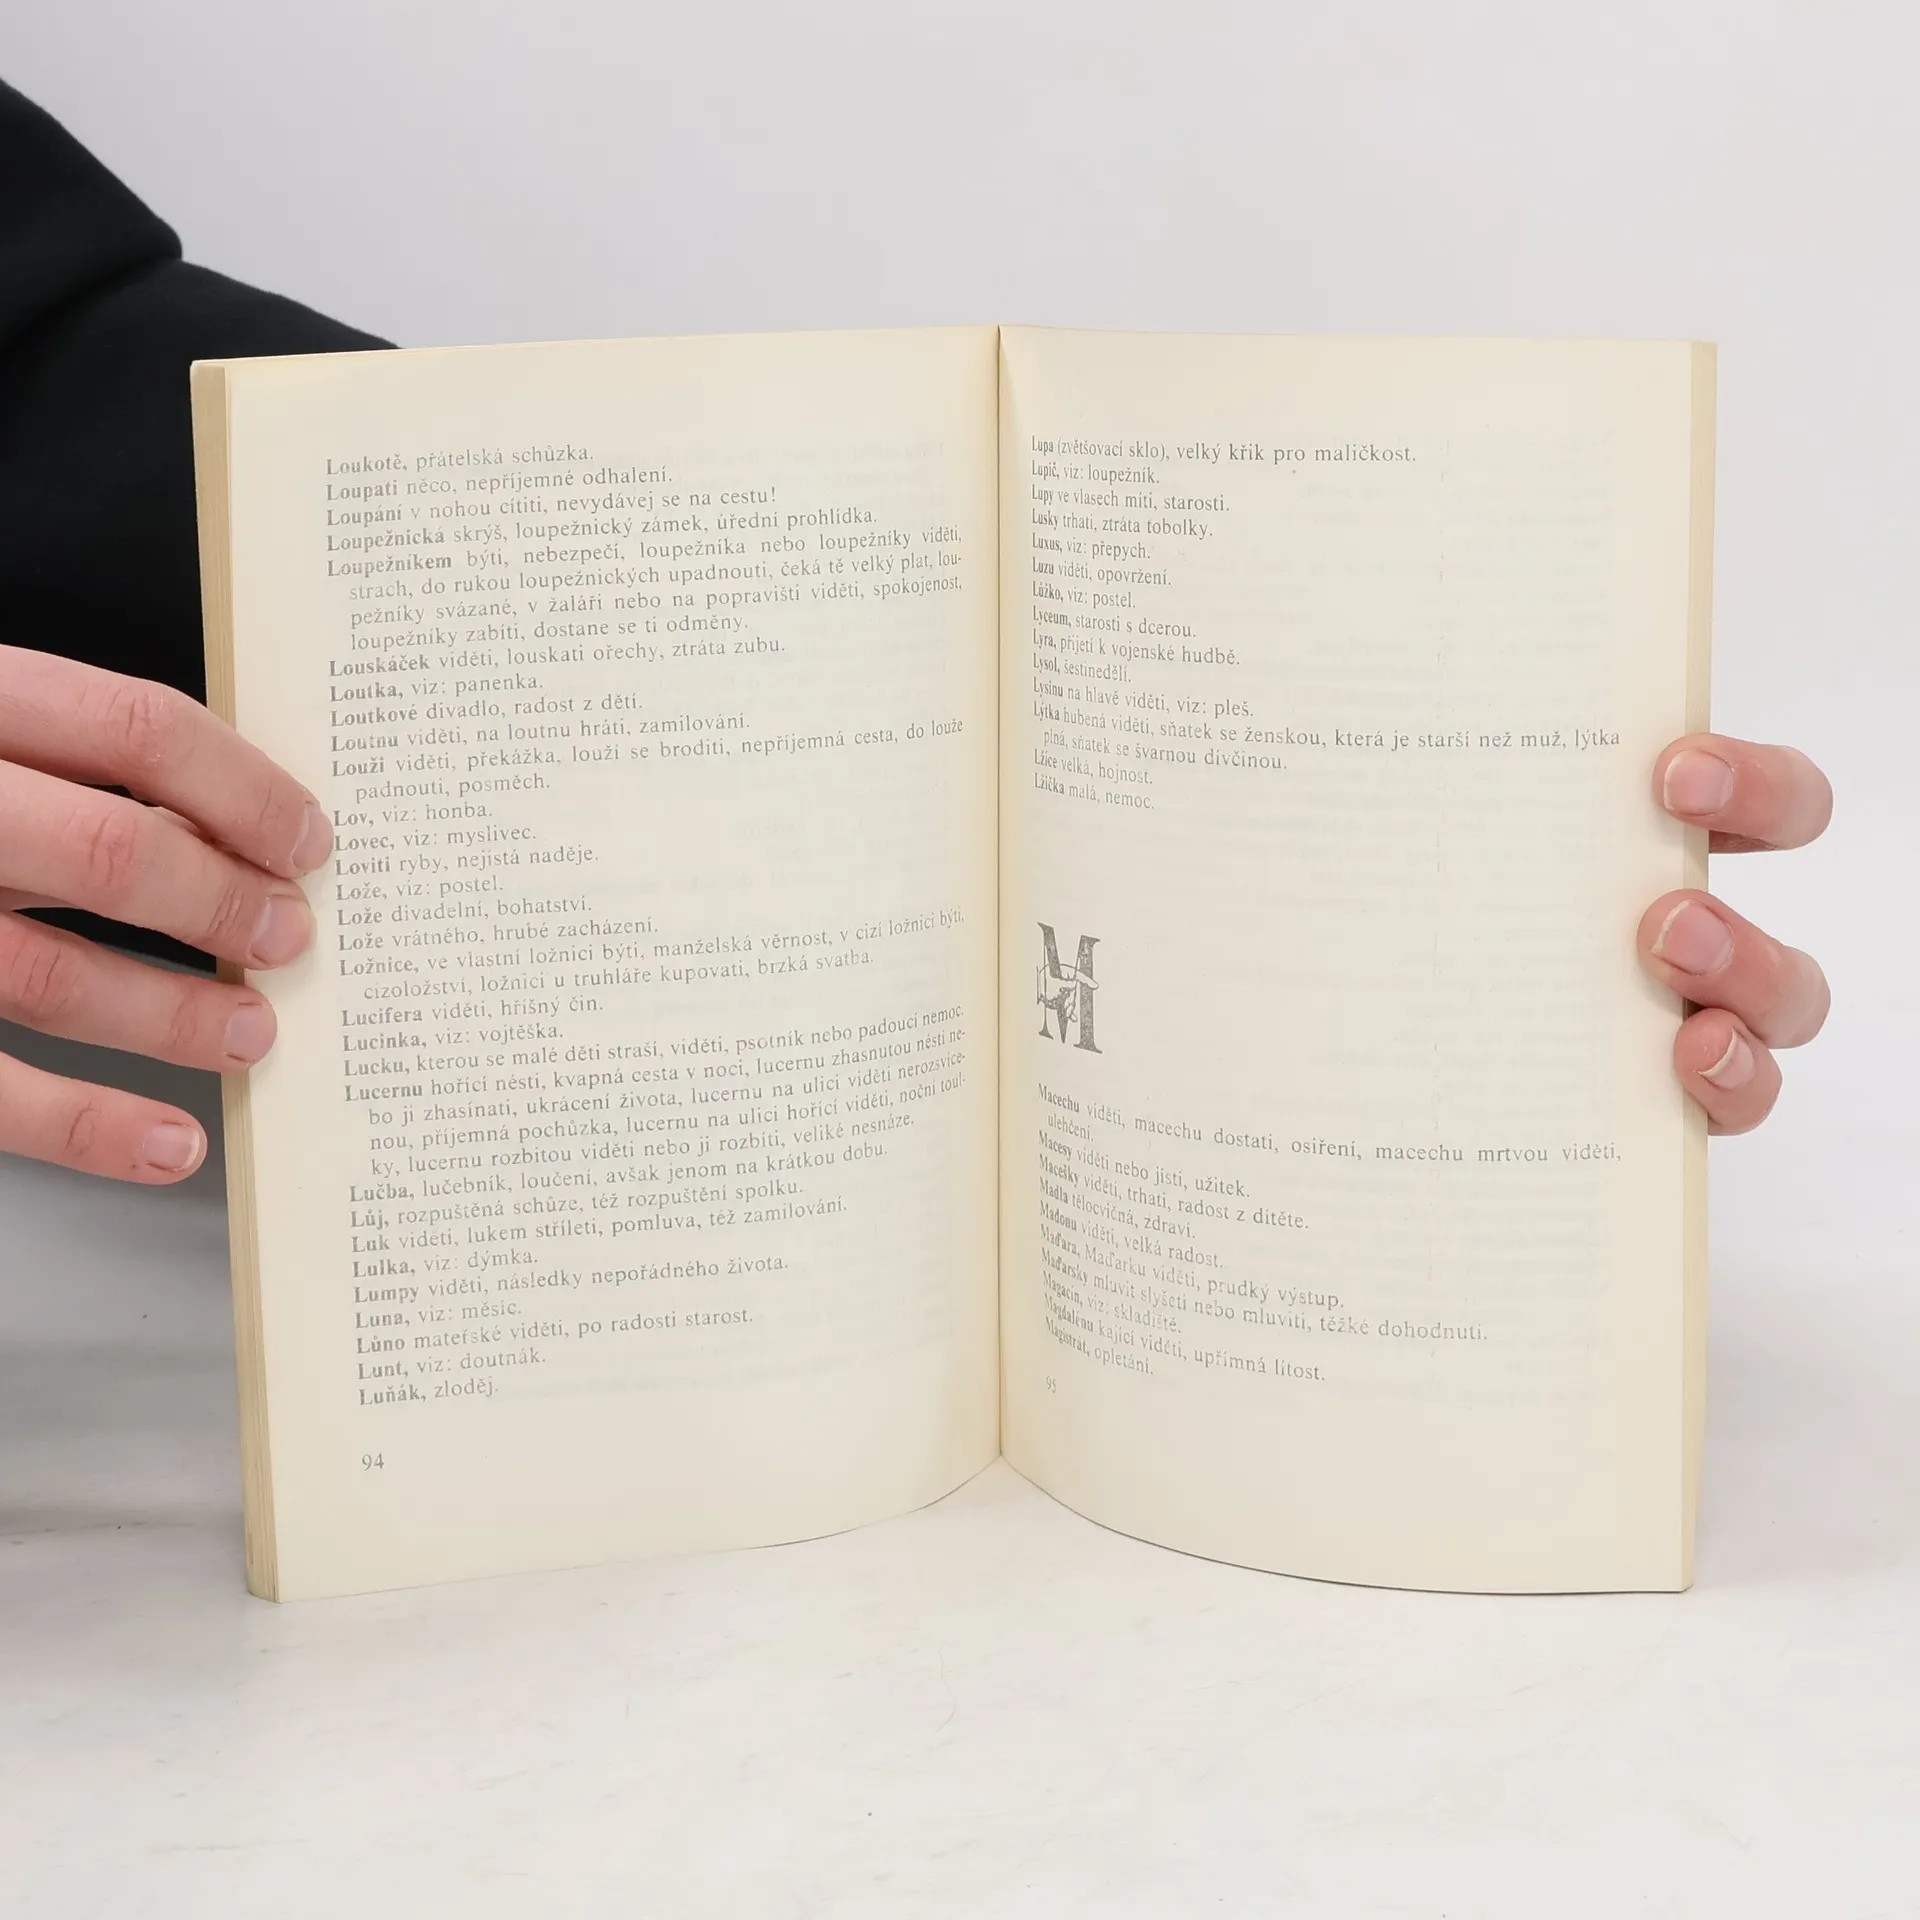 Loukotě, přátelská schůzka.
Loupati něco, nepříjemné odhalení.
Loupání v nohou cítiti, nevydávej se na cestu!
Loupežnická skrýš, loupežnický zámek, úřední prohlídka.
Loupežníkem býti, nebezpečí, loupežníka nebo loupežníky viděti,
strach, do rukou loupežnických upadnouti, čeká tě velký plat, lou-
pežníky svázané, v žaláři nebo na popravišti viděti, spokojenost,
loupežníky zabíti, dostane se ti odměny.
Louskáček viděti, louskati ořechy, ztráta zubu.
Loutka, viz: panenka.
Loutkové divadlo, radost z dětí.
Loutnu viděti, na loutnu hráti, zamilování.
Louži viděti, překážka, louží se broditi, nepříjemná cesta, do louže
padnouti, posměch.
Lov, viz: honba.
Lovec, viz: myslivec.
Loviti ryby, nejistá naděje.
Lože, viz: postel.
Lože divadelní, bohatství.
Lože vrátného, hrubé zacházení.
Ložnice, ve vlastní ložnici býti, manželská věrnost, v cizí ložnici býti,
cizoložství, ložnici u truhláře kupovati, brzká svatba.
Lucifera viděti, hříšný čin.
Lucinka, viz: vojtěška.
Lucku, kterou se malé děti straší, viděti, psotník nebo padoucí nemoc.
Lucernu hořící nésti, kvapná cesta v noci, lucernu zhasnutou nésti ne-
bo ji zhasínati, ukrácení života, lucernu na ulici viděti nerozsvíce-
nou, příjemná pochůzka, lucernu na ulici hořící viděti, noční toul-
ky, lucernu rozbitou viděti nebo ji rozbíti, veliké nesnáze.
Lučba, lučebník, loučení, avšak jenom na krátkou dobu.
Lůj, rozpuštěná schůze, též rozpuštění spolku.
Luk viděti, lukem stříleti, pomluva, též zamilování.
Lulka, viz: dýmka.
Lumpy viděti, následky nepořádného života.
Luna, viz: měsíc.
Lůno mateřské viděti, po radosti starost.
Lunt, viz: doutnák.
Luňák, zloděj.
94
Lupa (zvětšovací sklo), velký křik pro maličkost.
Lupič, viz: loupežník.
Lupy ve vlasech míti, starosti.
Lusky trhati, ztráta tobolky.
Luxus, viz: přepych.
Luzu viděti, opovržení.
Lůžko, viz: postel.
Lyceum, starosti s dcerou.
Lyra, přijetí k vojenské hudbě.
Lysol, šestinedělí.
Lysinu na hlavě viděti, viz: pleš.
Lýtka hubená viděti, sňatek se ženskou, která je starší než muž, lýtka
plná, sňatek se švarnou dívčinou.
Lžíce velká, hojnost.
Lžička malá, nemoc.
M
Macechu viděti, macechu dostati, osiření, macechu mrtvou viděti,
ulehčení.
Macesy viděti nebo jísti, užitek.
Macešky viděti, trhati, radost z dítěte.
Madla tělocvičná, zdraví.
Madonu viděti, velká radost.
Maďara, Maďarku viděti, prudký výstup.
Maďarsky mluvit slyšeti nebo mluviti, těžké dohodnutí.
Magacín, viz: skladiště.
Magdalénu kající viděti, upřímná lítost.
Magistrát, opletání.
95